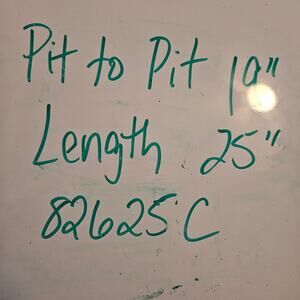 Pit to Pit 19"
Length 25"
82625 C